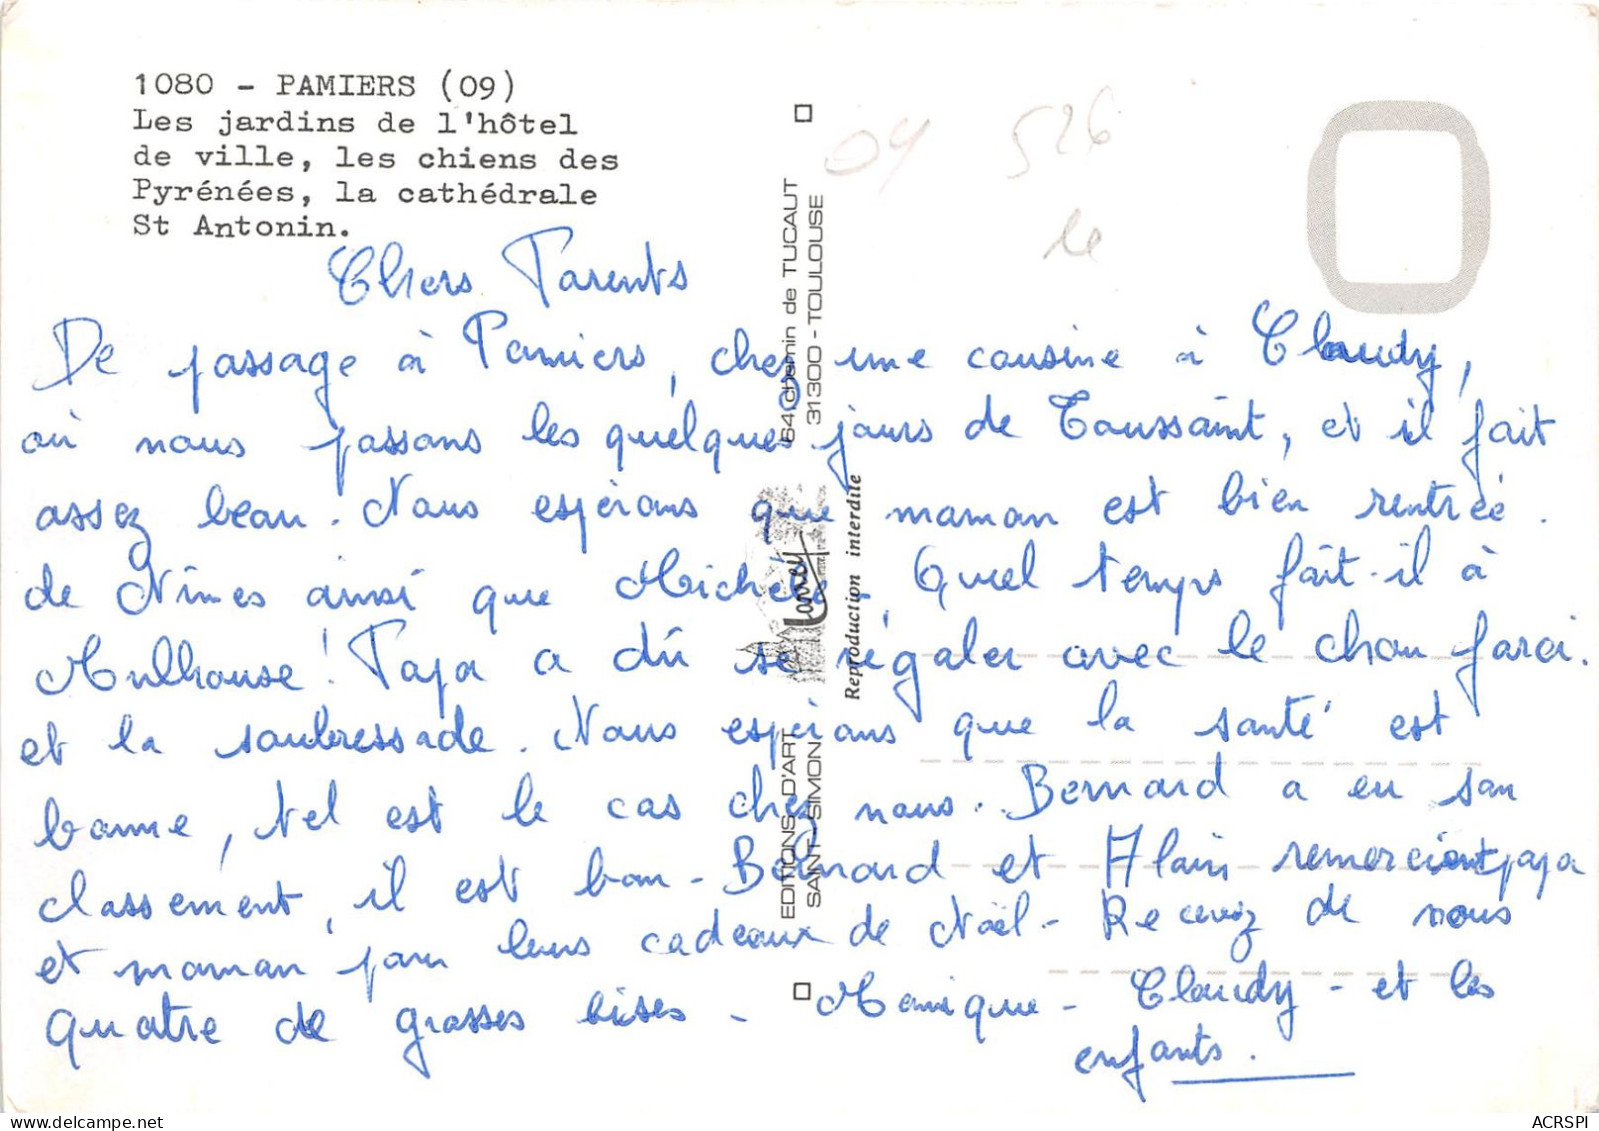 1080 - PAMIERS (09)
Les jardins de l'hôtel
de ville, les chiens des
Pyrénées, la cathédrale
St Antonin.
09 526
le
Chers Parents
De passage à Pamiers, chez une cousine à Claudy,
où nous passons les quelques jours de Toussaint, et il fait
assez beau. Nous espérons que maman est bien rentrée.
de Nîmes ainsi que Michèle. Quel temps fait-il à
Mulhouse! Papa a dû se régaler avec le chou farci.
et la soubressade. Nous espérons que la santé est
bonne, tel est le cas chez nous. Bernard a eu son
classement, il est bon - Bernard et Alain remercient papa
et maman pour leurs cadeaux de Noël - Recevez de nous
quatre de grosses bises - Monique - Claudy - et les
enfants.
EDITIONS D'ART
SAINT-SIMON
64 chemin de TUCAUT
31300 - TOULOUSE
Larrey
Reproduction interdite
ACRSPI